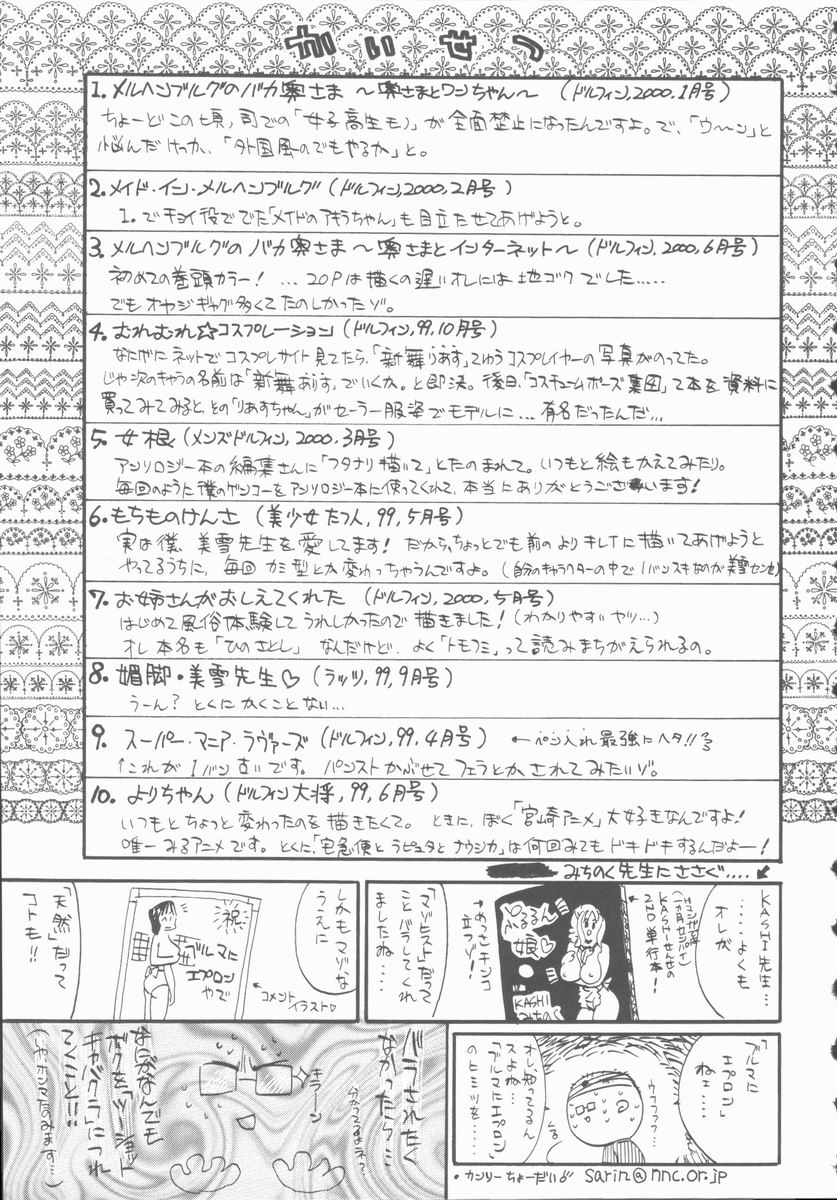 かいせつ
1. メルヘンブルグのバカ奥さま ～奥さまとワンちゃん～ (ドルフィン,2000,1月号)
ちょーどこの頃、司での「女子高生モノ」が全面禁止になったんですよ。で、「ウ～ン」と
悩んだけっか、「外国風のでもやるか」と。
2. メイド・イン・メルヘンブルグ (ドルフィン,2000,2月号)
1. でチョイ役ででた「メイドのアキラちゃん」も目立たせてあげようと。
3. メルヘンブルグの バカ奥さま ～奥さまとインターネット～ (ドルフィン,2000,6月号)
初めての巻頭カラー! … 20Pは描くの遅いオレには地ゴクでした……
でもオヤジギャグ多くてたのしかったゾ。
4. むれむれ☆コスプレーション (ドルフィン,99,10月号)
なにげにネットでコスプレサイト見てたら、「新舞りあす」てゆうコスプレイヤーの写真がのってた。
じゃ次のキャラの名前は「新舞ありす」でいくか。と即決。後日、「コスチュームポーズ集団」て本を資料に
買ってみてみると、その「りあすちゃん」がセーラー服姿でモデルに… 有名だったんだ…
5. 女根 (メンズドルフィン,2000,3月号)
アンソロジー本の編集さんに「フタナリ描いて」とたのまれて。いつもと絵もかえてみたり。
毎回のように僕のゲンコーをアンソロジー本に使ってくれて、本当にありがとうございます!
6. もちものけんさ (美少女たつ人,99,5月号)
実は僕、美雪先生を愛してます! だから、ちょっとでも前のよりキレイに描いてあげようと
やってるうちに、毎回カミ型とか変わっちゃうんですよ。(自分のキャラクターの中で1バンスキなのが美雪センセ)
7. お姉さんがおしえてくれた (ドルフィン,2000,5月号)
はじめて風俗体験してうれしかったので描きました! (わかりやすいヤツ…)
オレ本名も「ひのさとし」なんだけど、よく「トモフミ」って読みまちがえられるの。
8. 媚脚・美雪先生♡ (ラッツ,99,9月号)
うーん? とくにかくことない…
9. スーパー・マニア・ラヴァーズ (ドルフィン,99,4月号) ←ペン入れ最強にヘタ!!
↑これが1バン古いです。パンストかぶせてフェラとかされてみたいゾ。
10. よりちゃん (ドルフィン大将,99,6月号)
いつもとちょっと変わったのを描きたくて。ときに、ぼく「宮崎アニメ」大好きなんですよ!
唯一みるアニメです。とくに、「宅急便とラピュタとナウシカ」は何回みてもドキドキするんだよー!
みちのく先生にささぐ….
KASHI先生…
……よくも
オレが
KASHIせんせの
2ND単行本!
ぷるるん
娘♡
KASHI
みちのく
めっさキンコ
立つゾ!
「マゾヒスト」だって
ことバラしてくれ
ましたね…
しかもマゾな
うえに
祝
ブルマに
エプロン
やで
←コメント
イラスト♡
「天然」だって
コトも!!
「ブルマに
エプロン」
ねェ…
ウフフフ…
オレ、知ってるん
スよね…
「ブルマにエプロン」
のヒミツを…
バラされたく
なかったら…
分かってるよネ?
キラーン
なにがなんでも
ボクを「ツーショット
キャバクラ」につれ
てくこと!!
(しゃカンマたのみます…)
・カンソーちょーだい sarin@nnc.or.jp